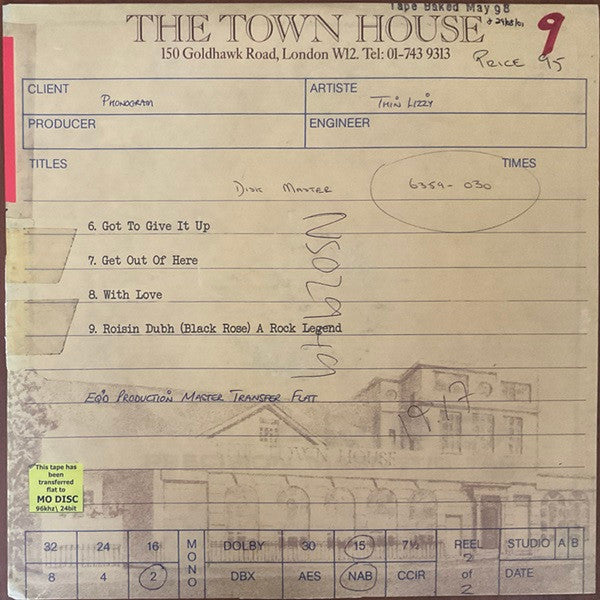 Tape Baked May 98
THE TOWN HOUSE
9
150 Goldhawk Road, London W12. Tel: 01-743 9313
PRICE 95
CLIENT PHONOGRAM ARTISTE THIN LIZZY
PRODUCER ENGINEER
TITLES TIMES
DISK MASTER 6359-030
6. Got To Give It Up
7. Get Out Of Here
8. With Love
9. Roisin Dubh (Black Rose) A Rock Legend
NS02949
EQ'D PRODUCTION MASTER TRANSFER FLAT
1917
TOWN HOUSE
This tape has
been
transferred
flat to
MO DISC
96khz\ 24bit
32 24 16 MONO DOLBY 30 15 7½ REEL 2 of 2 STUDIO A B
8 4 2 DBX AES NAB CCIR DATE